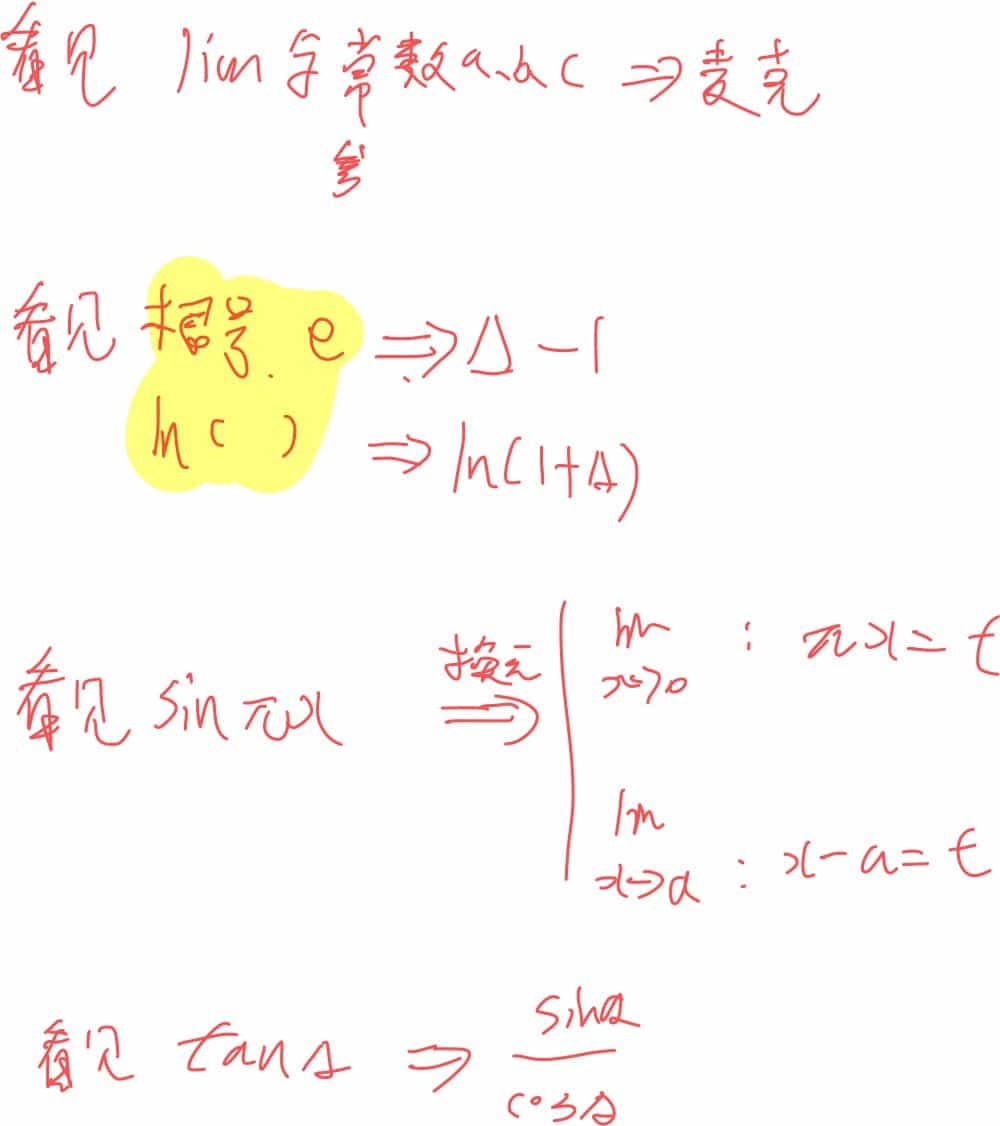 看见 lim 与常数a、b c ⇒ 麦克
看见 根号. e ⇒ Δ-1
ln( ) ⇒ ln(1+Δ)
看见 sinπx 换元 ⇒ lim x→0 : πx = t
lim x→a : x-a = t
看见 tanΔ ⇒ sinΔ / cosΔ